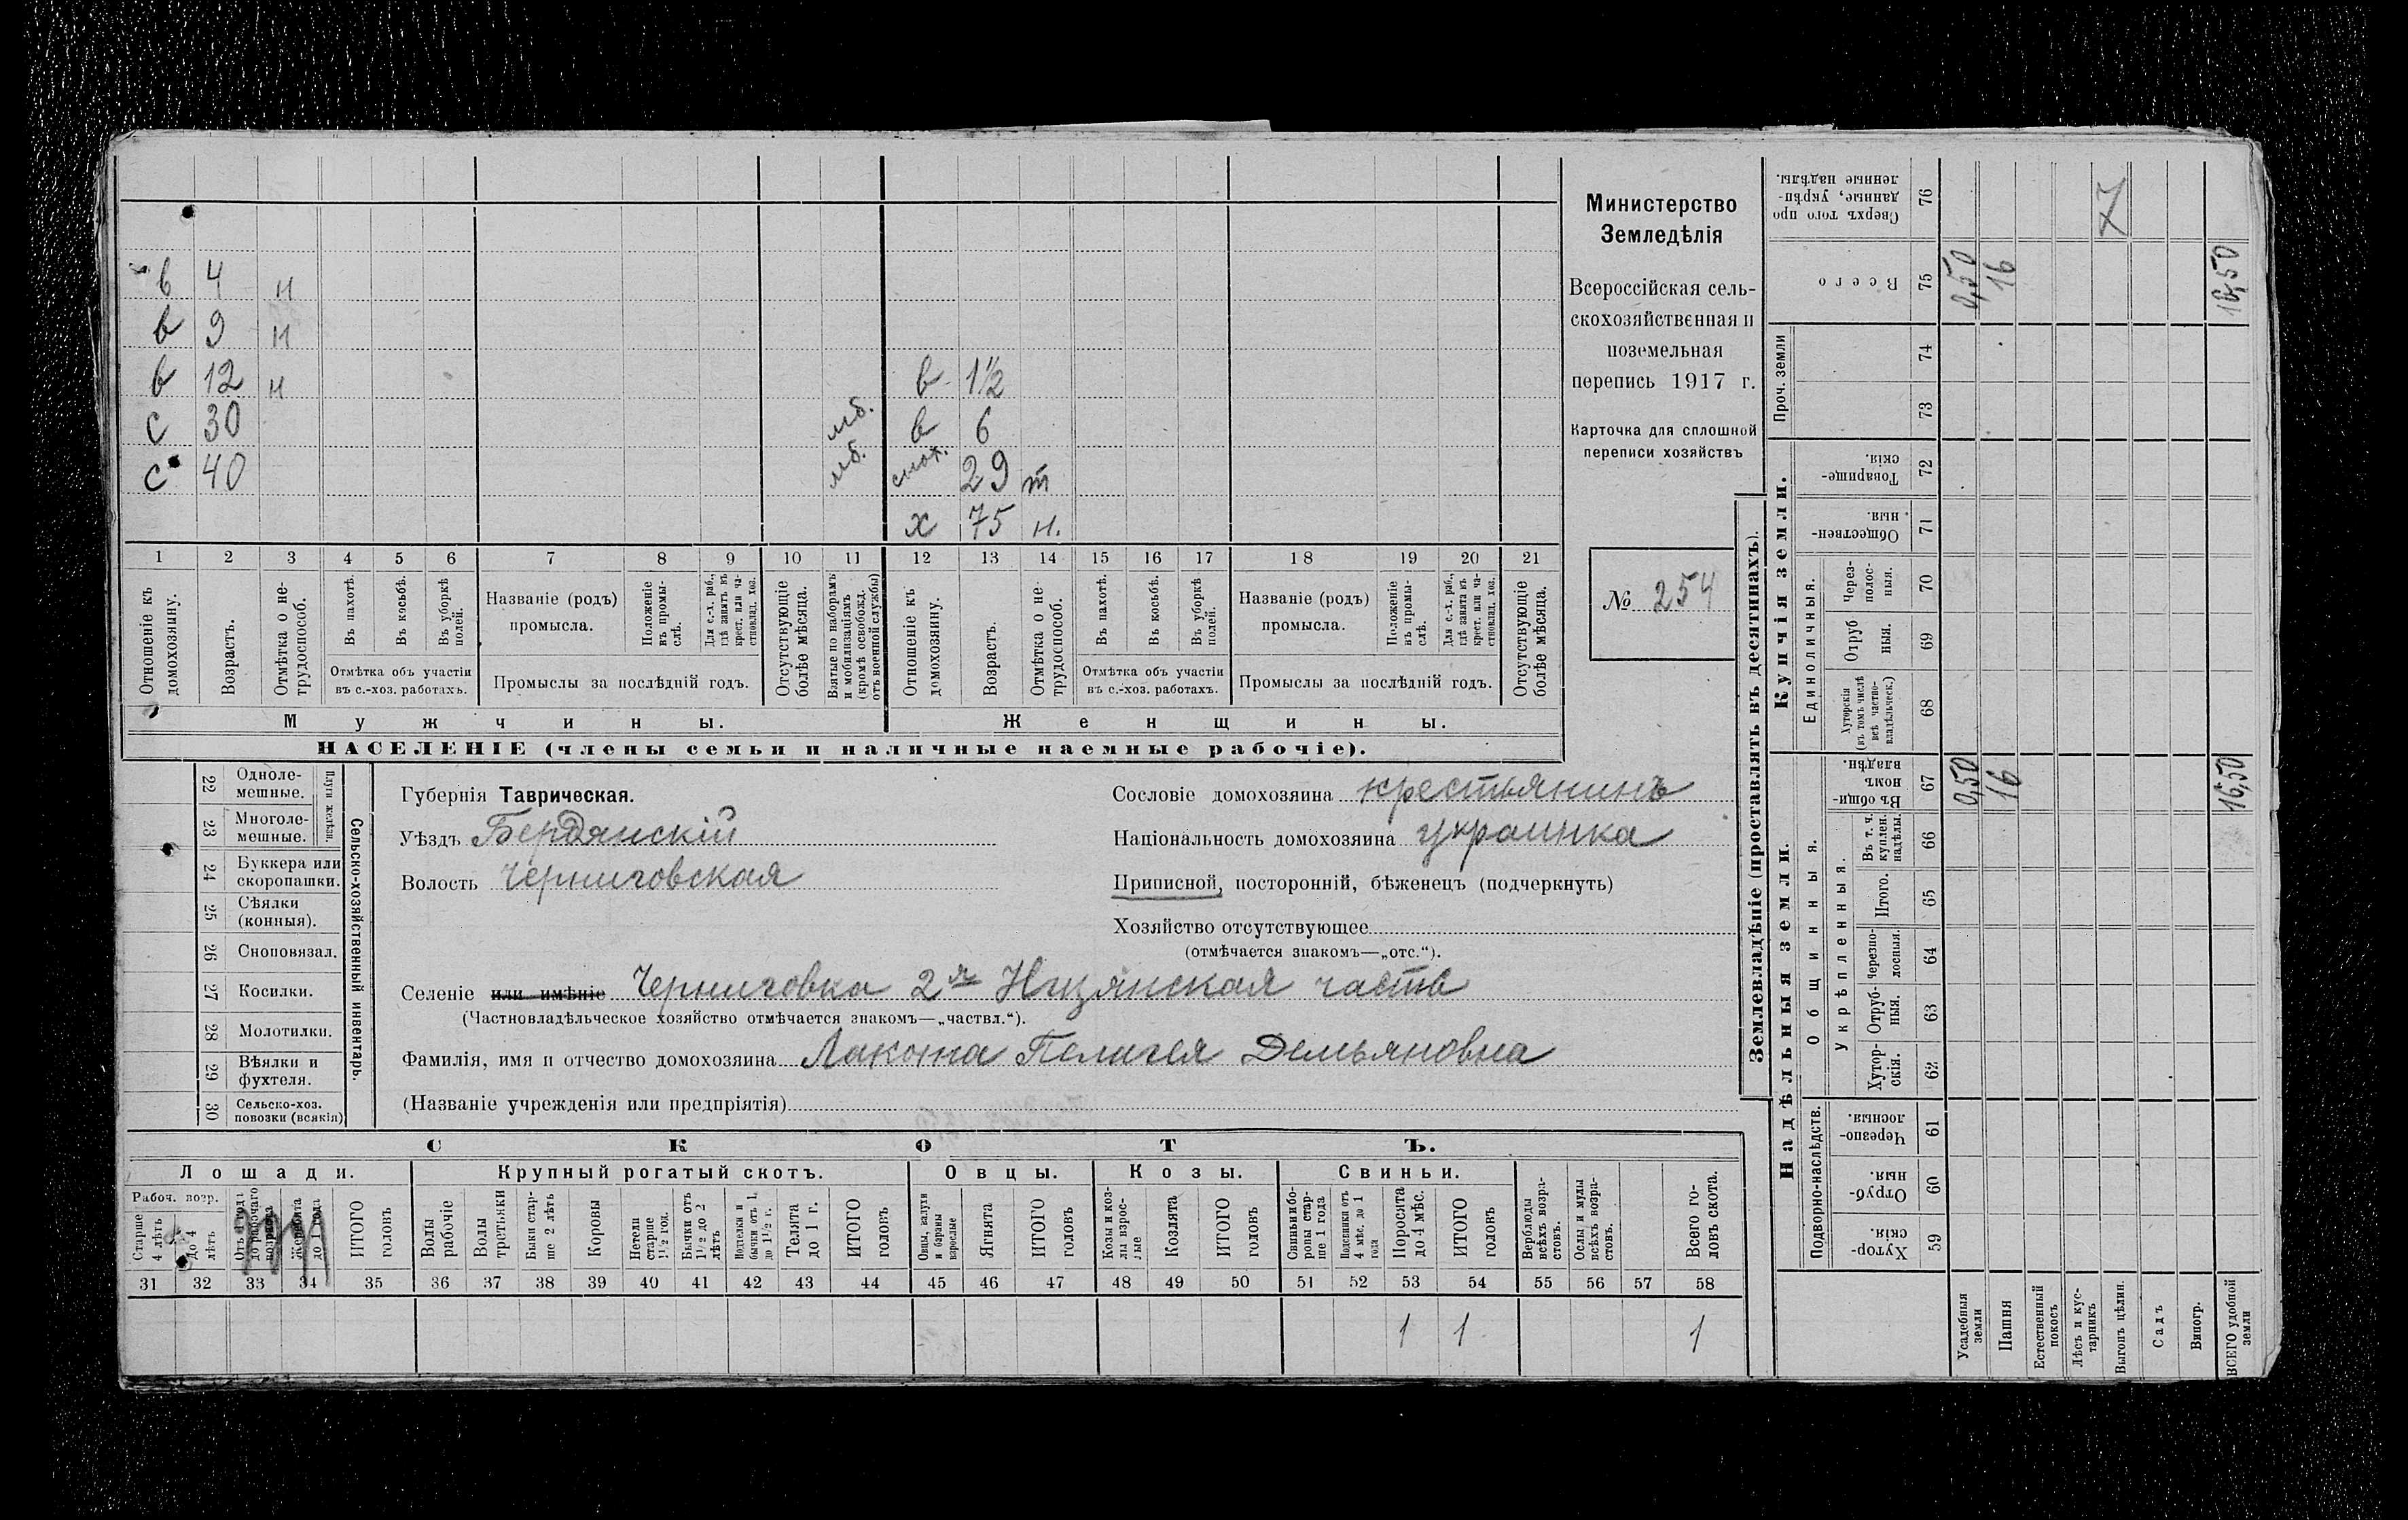 в 4 н
в 9 н
в 12 н в 1½
с 30 мб. в 6
с 40 мб. снох. 29 т
х 75 н.
1 2 3 4 5 6 7 8 9 10 11 12 13 14 15 16 17 18 19 20 21
Отношеніе къ домохозяину.
Возрастъ.
Отмѣтка о нетрудоспособ.
Въ пахотѣ.
Въ косьбѣ.
Въ уборкѣ полей.
Отмѣтка объ участіи
въ с.-хоз. работахъ.
Названіе (родъ)
промысла.
Положеніе въ промыслѣ.
Для с.-х. раб., гдѣ занятъ въ крест. или частновлад. хоз.
Промыслы за послѣдній годъ.
Отсутствующіе болѣе мѣсяца.
Взятые по наборамъ и мобилизаціямъ (кромѣ освобожд. отъ военной службы)
Отношеніе къ домохозяину.
Возрастъ.
Отмѣтка о нетрудоспособ.
Въ пахотѣ.
Въ косьбѣ.
Въ уборкѣ полей.
Отмѣтка объ участіи
въ с.-хоз. работахъ.
Названіе (родъ)
промысла.
Положеніе въ промыслѣ.
Для с.-х. раб., гдѣ занята въ крест. или частновлад. хоз.
Промыслы за послѣдній годъ.
Отсутствующіе болѣе мѣсяца.
Мужчины. Женщины.
НАСЕЛЕНІЕ (члены семьи и наличные наемные рабочіе).
Министерство
Земледѣлія
Всероссійская сель-
скохозяйственная и
поземельная
перепись 1917 г.
Карточка для сплошной
переписи хозяйствъ
№ 254
22 Одноле-
мешные.
23 Многоле-
мешные.
Плуги желѣзн.
24 Буккера или
скоропашки.
25 Сѣялки
(конныя).
26 Сноповязал.
27 Косилки.
28 Молотилки.
29 Вѣялки и
фухтеля.
30 Сельско-хоз.
повозки (всякія)
Сельско-хозяйственный инвентарь.
Губернія Таврическая.
Уѣздъ Бердянскій
Волость Черниговская
Сословіе домохозяина крестьянинъ
Національность домохозяина украинка
Приписной, посторонній, бѣженецъ (подчеркнуть)
Хозяйство отсутствующее
(отмѣчается знакомъ—„отс.“).
Селеніе или имѣніе Черниговка 2я Низянская часть
(Частновладѣльческое хозяйство отмѣчается знакомъ—„частвл.“).
Фамилія, имя и отчество домохозяина Лакота Пелагея Демьяновна
(Названіе учрежденія или предпріятія)
СКОТЪ.
Лошади. Крупный рогатый скотъ. Овцы. Козы. Свиньи.
Рабоч. возр.
Старше 4 лѣтъ
до 4 лѣтъ
Отъ 1 года до рабочаго возраста
Жеребята до 1 года
ИТОГО головъ
Волы рабочіе
Волы третьяки
Быки старше 2 лѣтъ
Коровы
Нетели старше 1½ год.
Бычки отъ 1½ до 2 лѣтъ
Телята до 1 г.
ИТОГО головъ
Овцы, валухи и бараны взрослые
Ягнята
ИТОГО головъ
Козы и козлы взрослые
Козлята
ИТОГО головъ
Свиньи и боровы старше 1 года
Подсвинки отъ 4 мѣс. до 1 года
Поросята до 4 мѣс.
ИТОГО головъ
Верблюды всѣхъ возрастовъ.
Ослы и мулы всѣхъ возрастовъ.
Всего головъ скота.
31 32 33 34 35 36 37 38 39 40 41 42 43 44 45 46 47 48 49 50 51 52 53 54 55 56 57 58
1 1 1
Землевладѣніе (проставлять въ десятинахъ).
Надѣльныя земли. Купчія земли.
Подворно-наслѣдств.
Общинныя.
Укрѣпленныя.
Единоличныя.
Проч. земли
Хуторскія 59
Отрубныя. 60
Черезполосныя. 61
Хуторскія. 62
Отрубныя. 63
Черезполосныя. 64
Итого. 65
Въ т. ч. куплен. надѣлы. 66
Въ общинномъ владѣн. 67
Хуторскія (въ томъ числѣ всѣ частновладѣльческ.) 68
Отрубныя. 69
Черезполосныя. 70
Общественныя. 71
Товарищескія. 72
73
74
Всего 75
Сверхъ того проданные, укрѣпленные надѣлы. 76
Усадебныя земли 0,50 0,50
Пашня 16 16
Естественный покосъ
Лѣсъ и кустарникъ
Выгонъ цѣлин.
Садъ
Виногр.
ВСЕГО удобной земли 16,50 16,50
7